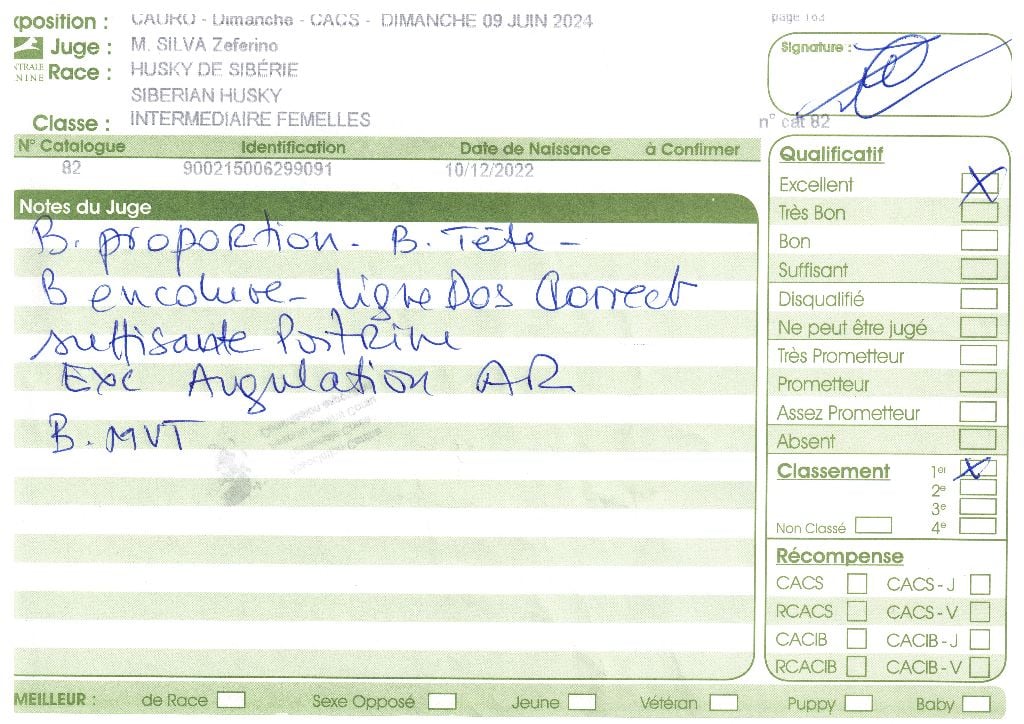 xposition : CAURO - Dimanche - CACS - DIMANCHE 09 JUIN 2024
page 163
Juge : M. SILVA Zeferino
Signature :
NTRALE
NINE
Race : HUSKY DE SIBÉRIE
SIBERIAN HUSKY
Classe : INTERMEDIAIRE FEMELLES
n° cat 82
N° Catalogue Identification Date de Naissance à Confirmer
82 900215006299091 10/12/2022
Notes du Juge
B. proportion - B. Tête -
B encolure - Ligne Dos Correct
suffisante Poitrine
Exc Angulation AR
B. MVT
Qualificatif
Excellent X
Très Bon
Bon
Suffisant
Disqualifié
Ne peut être jugé
Très Prometteur
Prometteur
Assez Prometteur
Absent
Classement 1er X
2e
3e
Non Classé 4e
Récompense
CACS CACS - J
RCACS CACS - V
CACIB CACIB - J
RCACIB CACIB - V
MEILLEUR : de Race Sexe Opposé Jeune Vétéran Puppy Baby